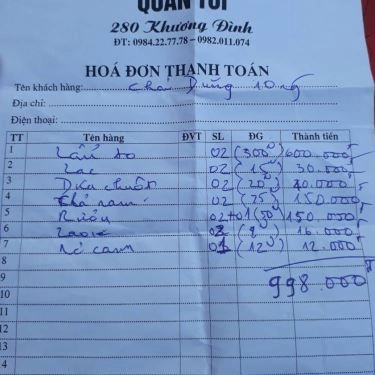 QUÁN TÔI
280 Khương Đình
ĐT: 0984.22.77.78 – 0982.011.074
HOÁ ĐƠN THANH TOÁN
Tên khách hàng: Dũng 10 ng
Địa chỉ:
Điện thoại:
TT Tên hàng ĐVT SL ĐG Thành tiền
1 Lẩu to 02 (300) 600.000
2 Lạc 02 (15) 30.000
3 Dưa chuột 02 (20) 40.000
4 02 (75) 150.000
5 Rượu 02+01 (50) 150.000
6 02 (8) 16.000
7 01 (12) 12.000
8
9 998.000
10
11
12
13
4